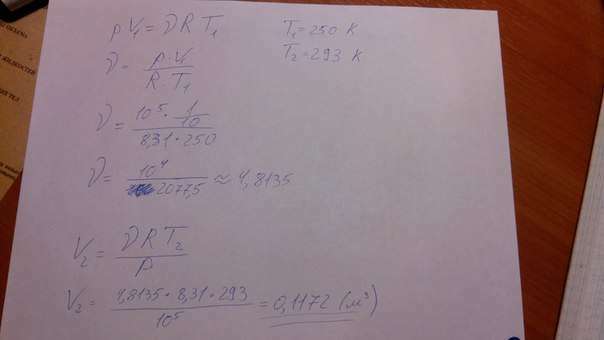 pV₁ = νRT₁
T₁ = 250 K
T₂ = 293 K
ν = p·V₁ / R·T₁
ν = 10⁵ · 1/10 / 8,31·250
ν = 10⁴ / 2077,5 ≈ 4,8135
V₂ = νRT₂ / p
V₂ = 4,8135·8,31·293 / 10⁵ = 0,1172 (м³)